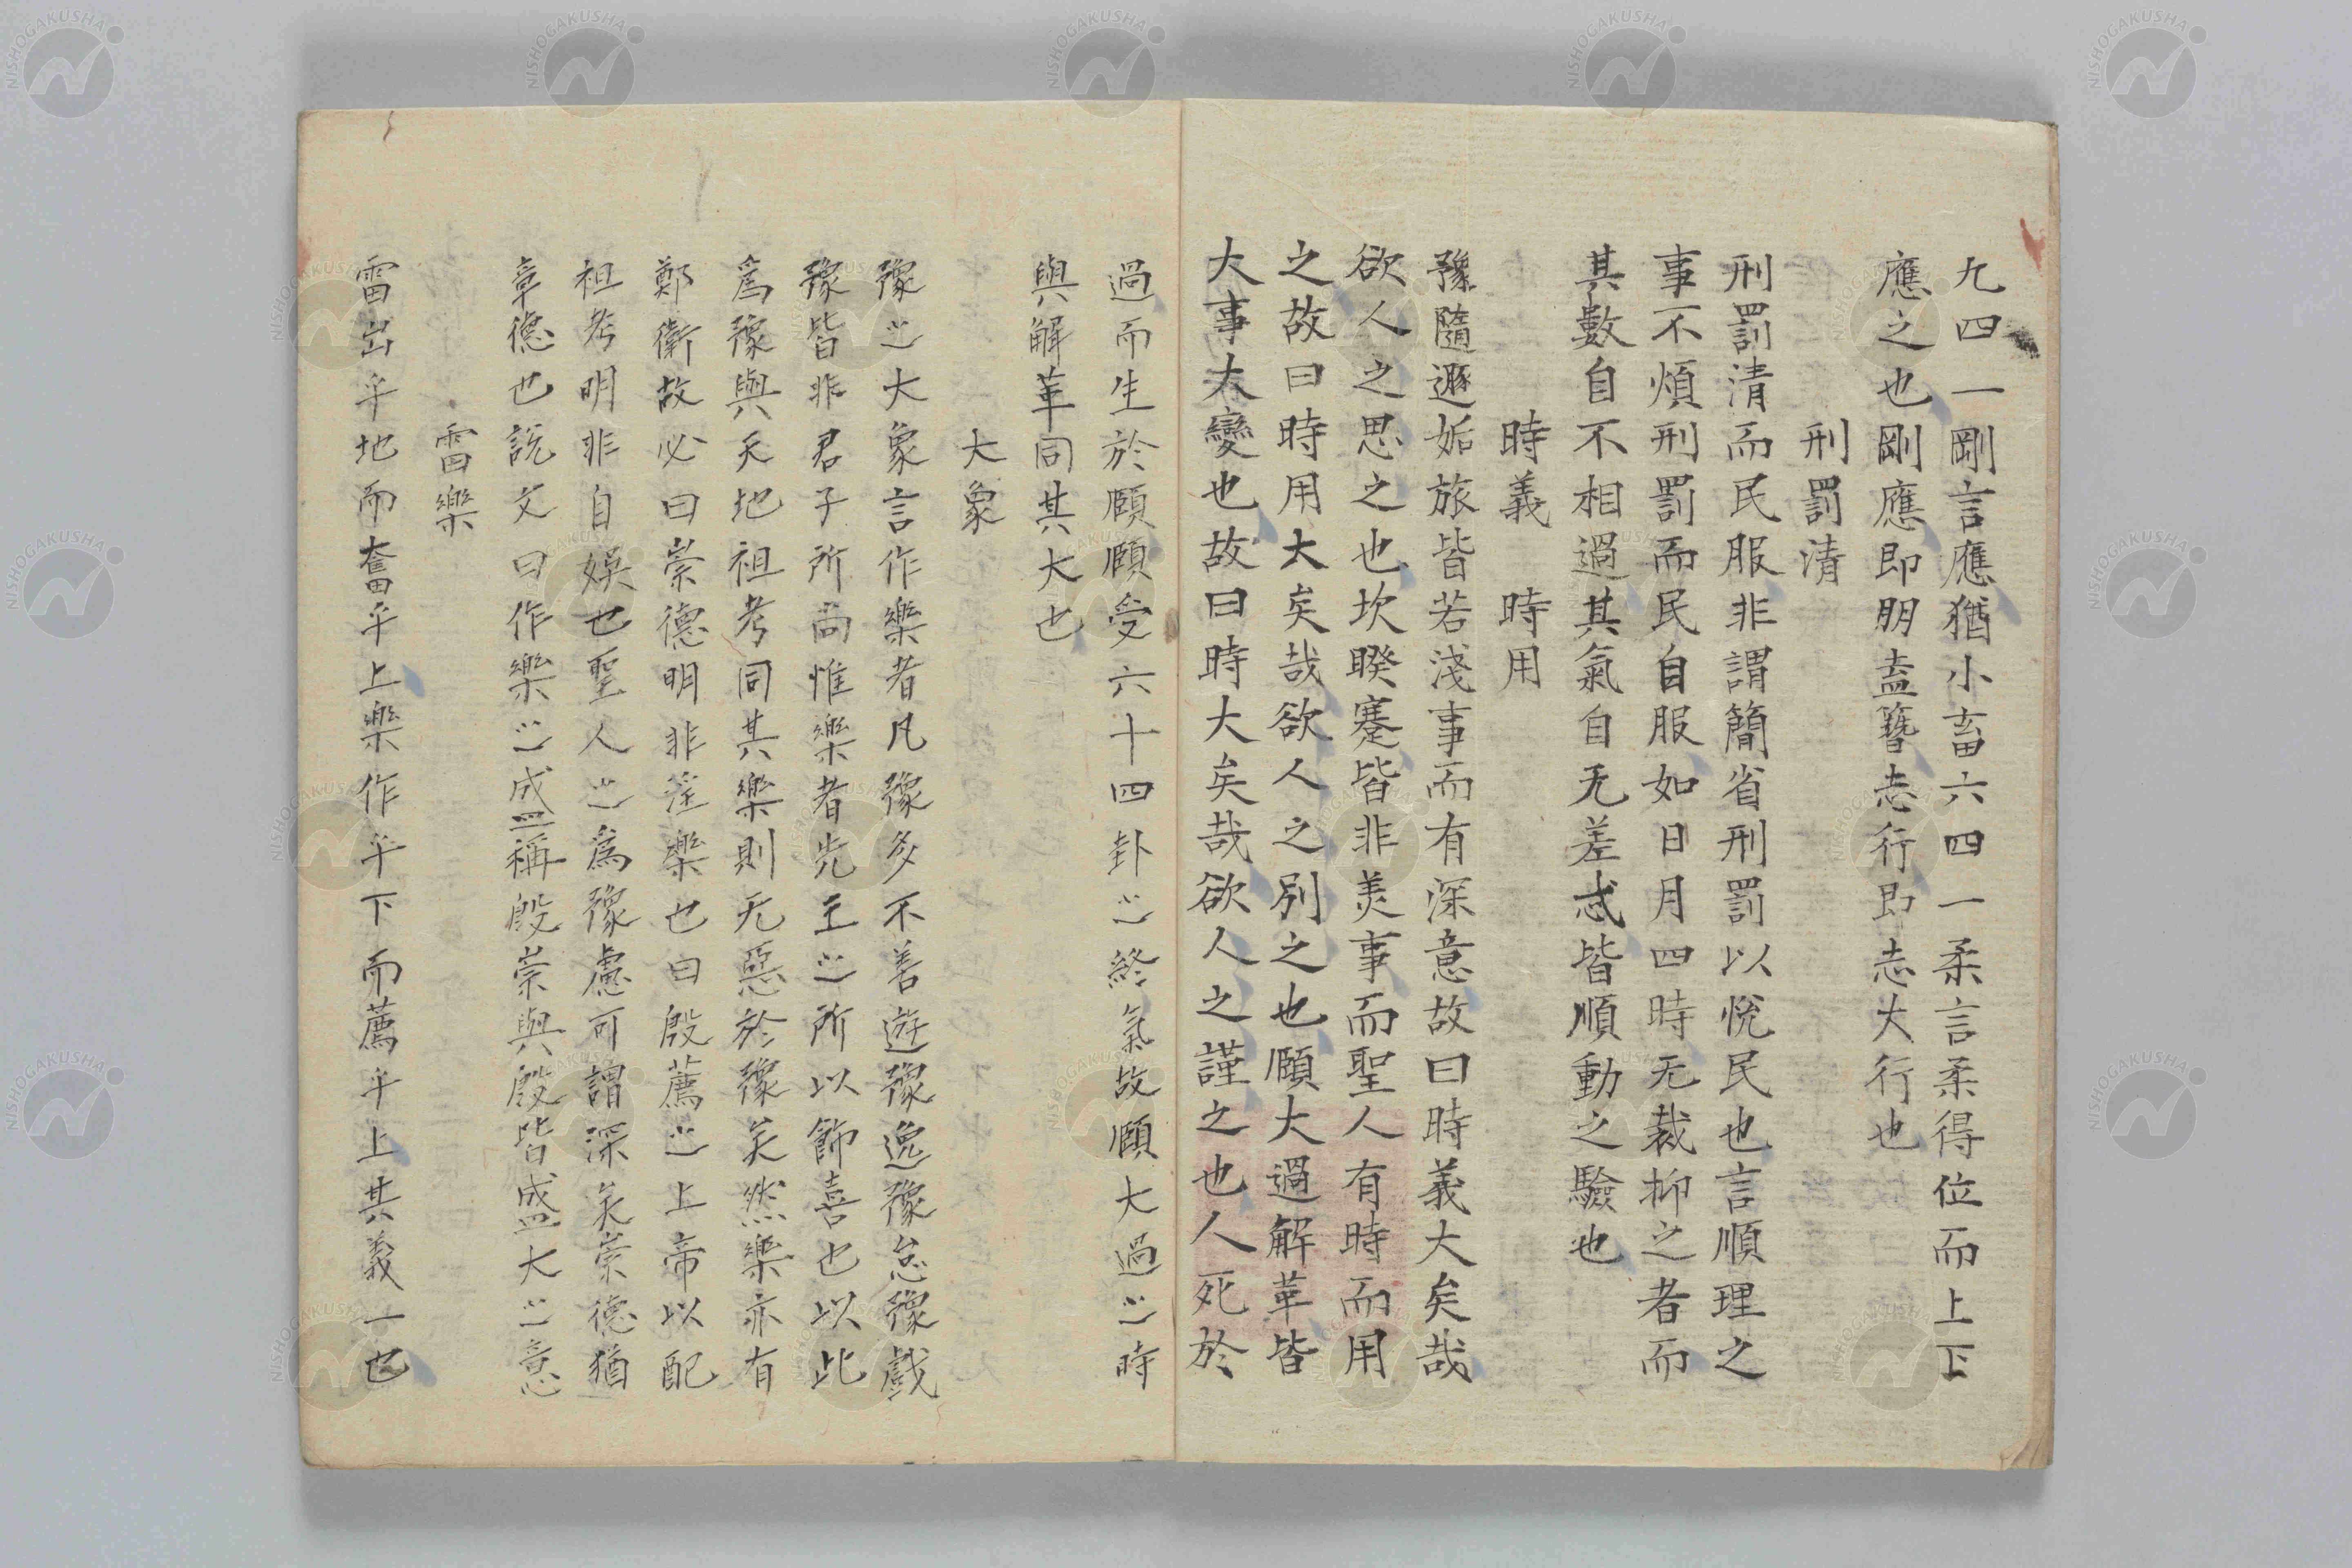 九四一剛言應猶小畜六四一柔言柔得位而上下
應之也剛應即朋盍簪志行即志大行也
刑罰清
刑罰清而民服非謂簡省刑罰以悅民也言順理之
事不煩刑罰而民自服如日月四時无裁抑之者而
其數自不相過其氣自无差忒皆順動之驗也
時義 時用
豫隨遯姤旅皆若淺事而有深意故曰時義大矣哉
欲人之思之也坎睽蹇皆非美事而聖人有時而用
之故曰時用大矣哉欲人之別之也頤大過解革皆
大事大變也故曰時大矣哉欲人之謹之也人死於
過而生於頤頤受六十四卦之終氣故頤大過之時
與解革同其大也
大象
豫之大象言作樂者凡豫多不善遊豫逸豫怠豫戲
豫皆非君子所尚惟樂者先王之所以飾喜也以此
爲豫與天地祖考同其樂則无惡於豫矣然樂亦有
鄭衛故必曰崇德明非淫樂也曰殷薦之上帝以配
祖考明非自娛也聖人之爲豫慮可謂深矣崇德猶
章德也說文曰作樂之盛稱殷崇與殷皆盛大之意
雷樂
雷出乎地而奮乎上樂作乎下而薦乎上其義一也
NISHOGAKUSHA